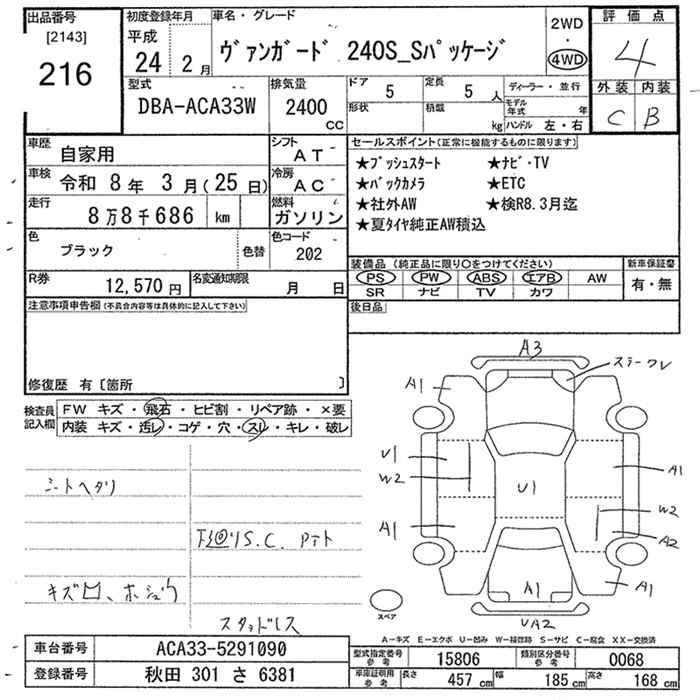 出品番号
[2143]
216
初度登録年月
平成
24 2月
車名・グレード
ヴァンガード 240S_Sパッケージ
2WD
・
4WD
評価点
4
外装 内装
C B
型式
DBA-ACA33W
排気量
2400
CC
ドア
5
定員
5 人
形状
積載
kg
ディーラー・並行
モデル年式 年
ハンドル 左・右
車歴
自家用
シフト
AT
車検
令和 8年 3月(25日)
冷房
AC
走行
8万8千686 km
燃料
ガソリン
色
ブラック
色替
色コード
202
R券
12,570円
名変通知期限
月 日
セールスポイント(正常に機能するものに限ります)
★プッシュスタート ★ナビ・TV
★バックカメラ ★ETC
★社外AW ★検R8.3月迄
★夏タイヤ純正AW積込
装備品(純正品に限り○をつけてください)
PS PW ABS エアB AW
SR ナビ TV カワ
新車保証書
有・無
後日品
注意事項申告欄(不具合内容等は具体的に記入して下さい)
修復歴 有〔箇所 〕
検査員記入欄
FW キズ・飛石・ヒビ割・リペア跡・×要
内装 キズ・汚レ・コゲ・穴・スレ・キレ・破レ
シートヘタリ
S.C.
キズ凹、ホシュウ
スタッドレス
A3
ステーワレ
A1
U1
W2
A1
U1
A1
W2
A2
A1
A1
UA2
スペア
A-キズ E-エクボ U-凹み W-補修跡 S-サビ C-腐食 XX-交換済
車台番号
ACA33-5291090
登録番号
秋田 301 さ 6381
型式指定番号
参考
15806
類別区分番号
参考
0068
車庫証明用
参考
長さ 457 cm
幅 185 cm
高さ 168 cm